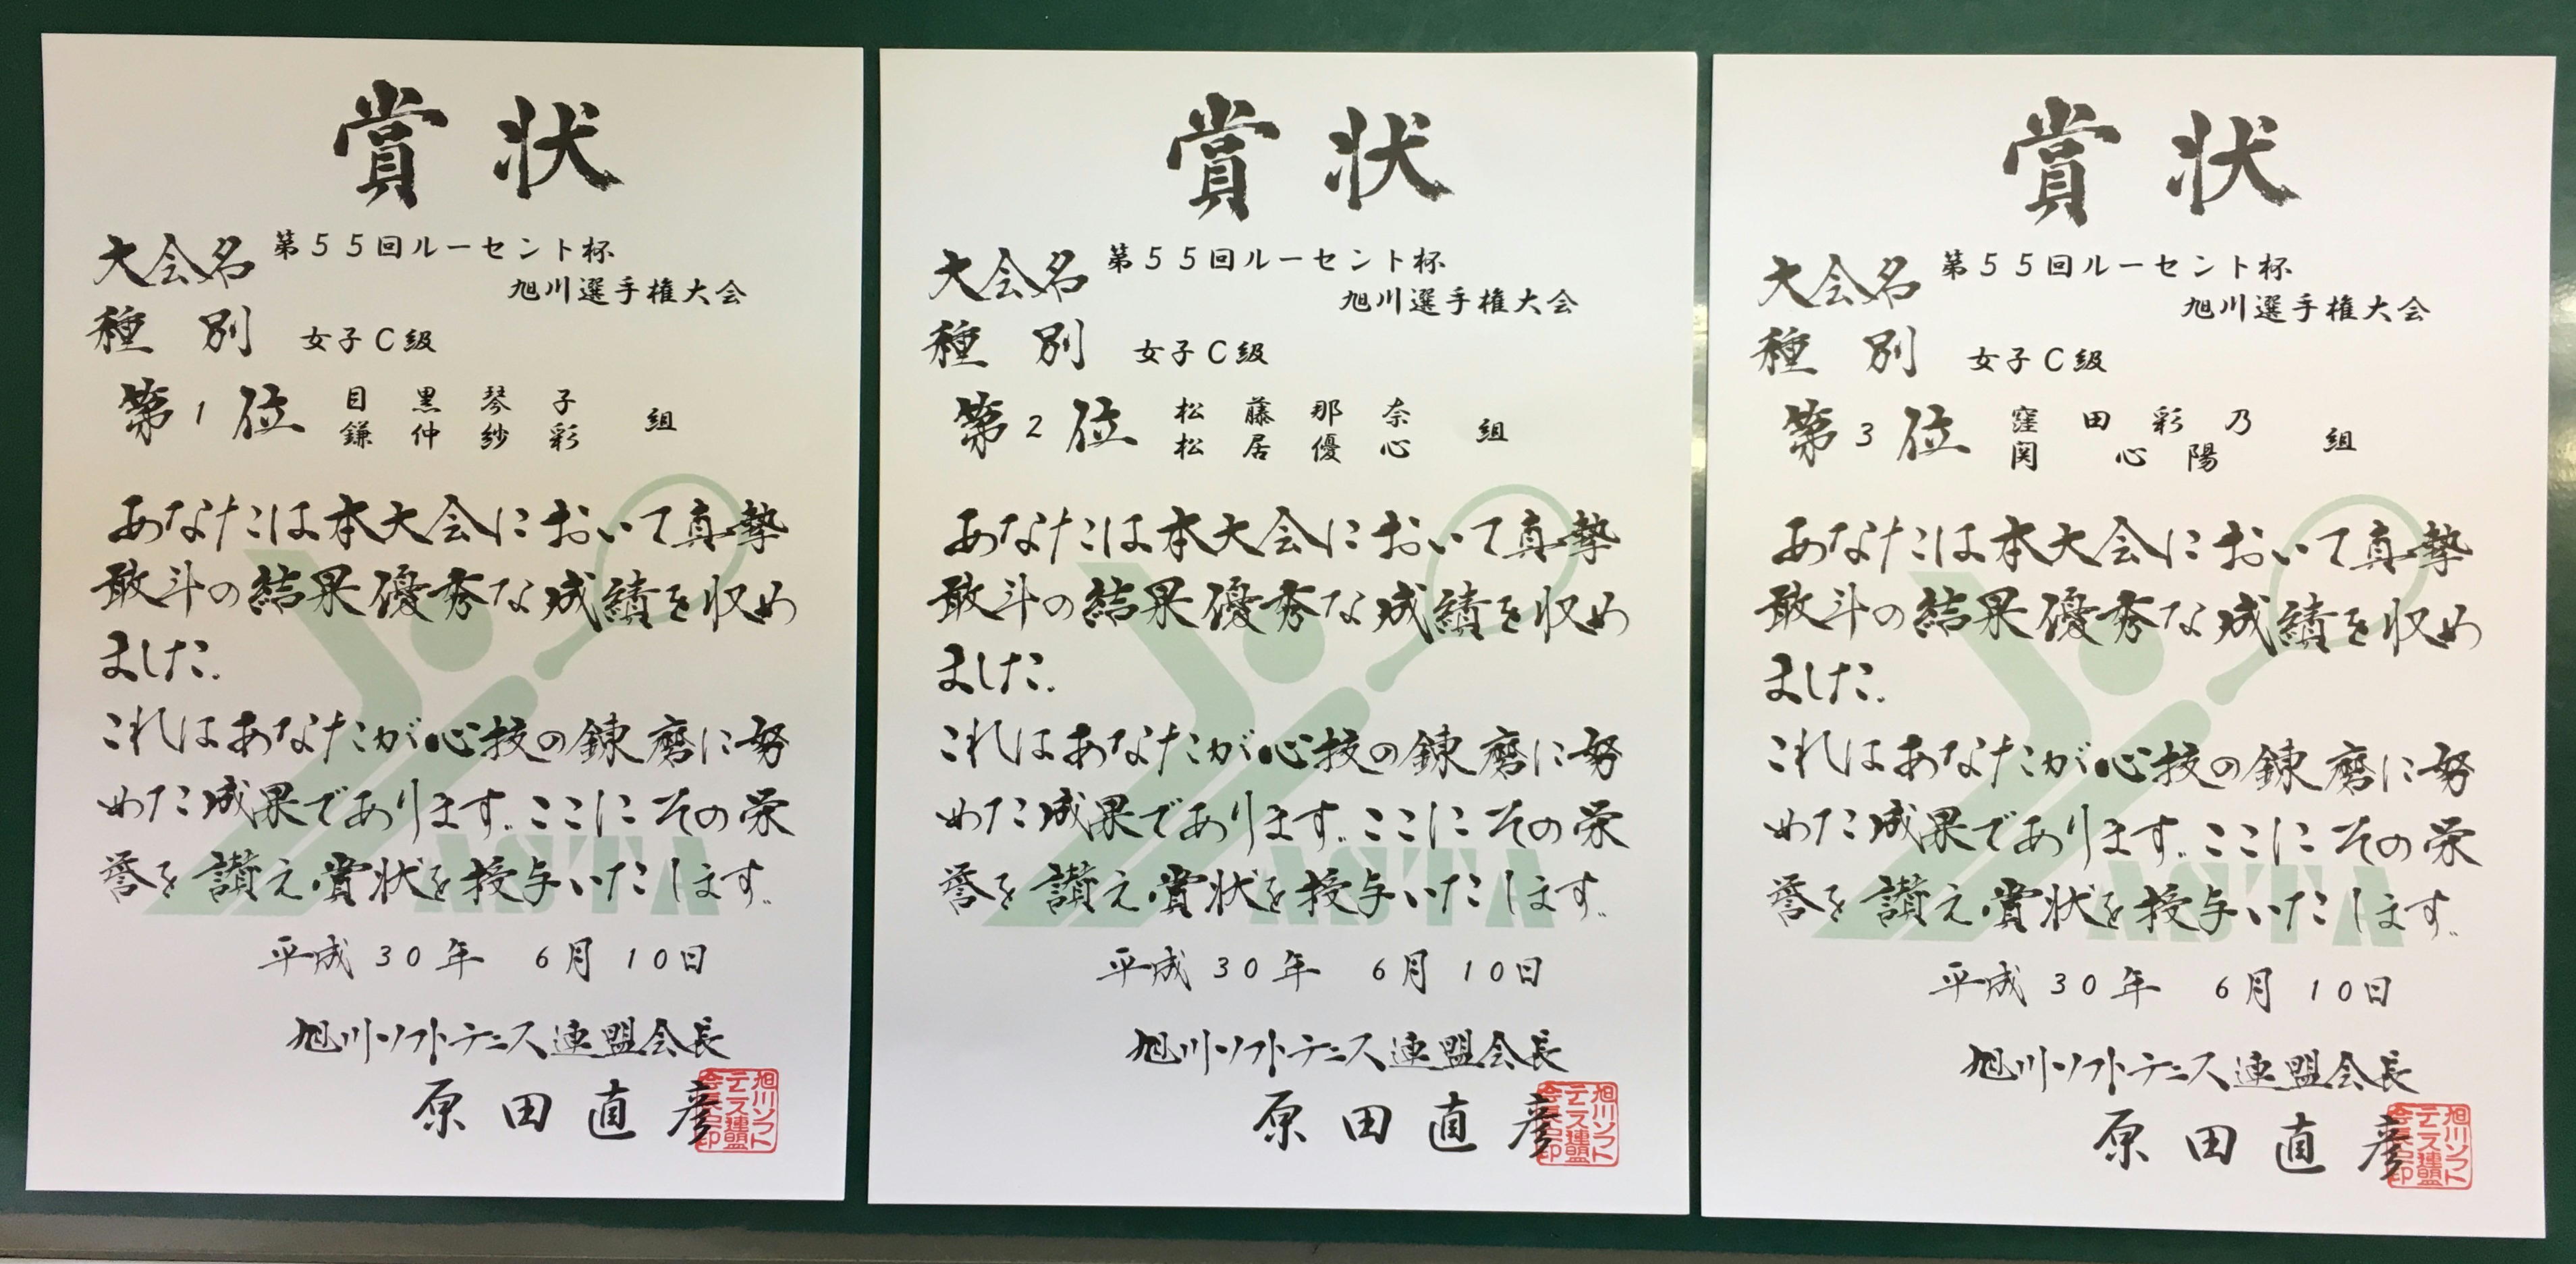 賞状
大会名 第55回ルーセント杯
旭川選手権大会
種別 女子C級
第1位 目黒琴子 組
鎌仲紗彩
あなたは本大会において真摯
敢斗の結果優秀な成績を収め
ました。
これはあなたが心技の錬磨に努
めた成果であります。ここにその栄
誉を讃え賞状を授与いたします。
ASTA
平成30年 6月10日
旭川ソフトテニス連盟会長
原田直彦
旭川ソフト
テニス連盟
会長之印
賞状
大会名 第55回ルーセント杯
旭川選手権大会
種別 女子C級
第2位 松藤那奈 組
松居優心
あなたは本大会において真摯
敢斗の結果優秀な成績を収め
ました。
これはあなたが心技の錬磨に努
めた成果であります。ここにその栄
誉を讃え賞状を授与いたします。
ASTA
平成30年 6月10日
旭川ソフトテニス連盟会長
原田直彦
旭川ソフト
テニス連盟
会長之印
賞状
大会名 第55回ルーセント杯
旭川選手権大会
種別 女子C級
第3位 窪田彩乃 組
関心陽
あなたは本大会において真摯
敢斗の結果優秀な成績を収め
ました。
これはあなたが心技の錬磨に努
めた成果であります。ここにその栄
誉を讃え賞状を授与いたします。
ASTA
平成30年 6月10日
旭川ソフトテニス連盟会長
原田直彦
旭川ソフト
テニス連盟
会長之印